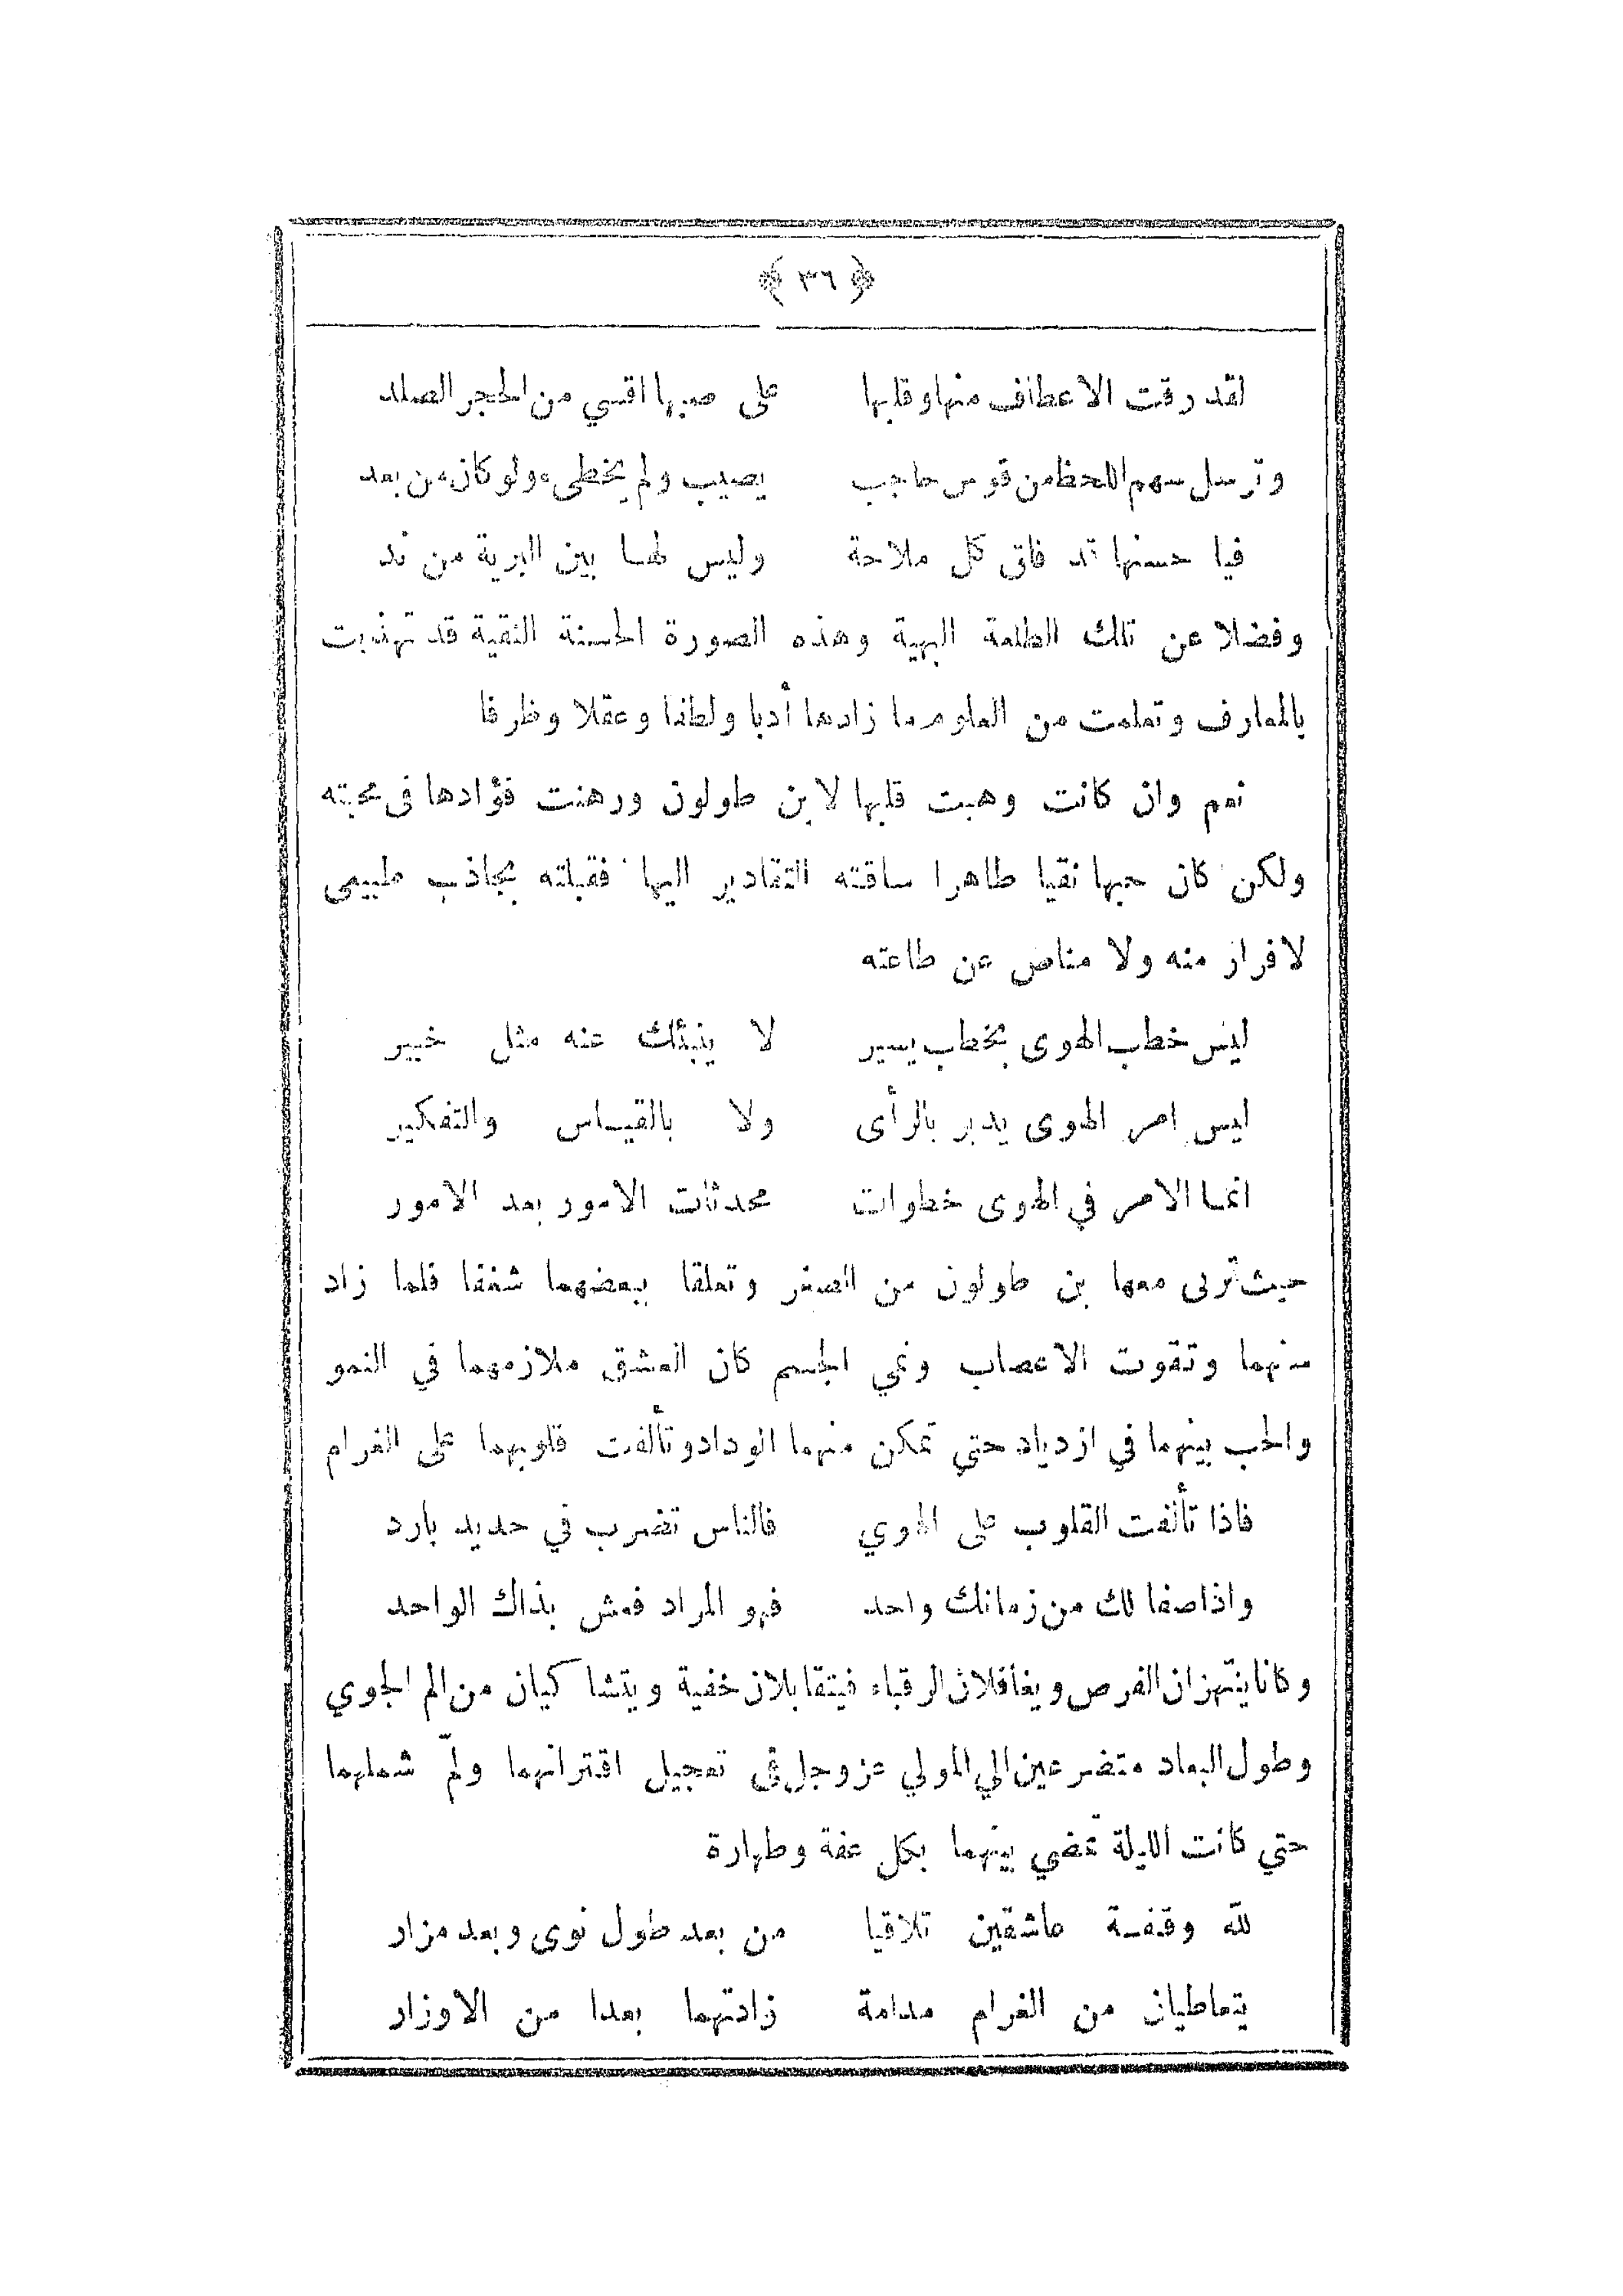 ﴿ ٣٦ ﴾
لقد رقت الاعطاف منها وقلبها على صبها اقسي من الحجر الصلد
وترسل سهم اللحظ من قوس حاجب يصيب ولم يخطىء ولو كان من بعد
فيا حسنها قد فاق كل ملاحة وليس لها بين البرية من ند
وفضلا عن تلك الطلعة البهية وهذه الصورة الحسنة النقية قد تهذبت
بالمعارف وتعلمت من العلوم ما زادها أدبا ولطفا وعقلا وظرفا
نعم وان كانت وهبت قلبها لابن طولون ورهنت فؤادها فى محبته
ولكن كان حبها نقيا طاهرا ساقته التقادير اليها فقبلته بجاذب طبيعى
لافرار منه ولا مناص عن طاعته
ليس خطب الهوى بخطب يسير لا ينبئك عنه مثل خبير
ليس امر الهوى يدبر بالرأى ولا بالقياس والتفكير
انما الامر في الهوى خطوات محدثات الامور بعد الامور
حيث تربى معها بن طولون من الصغر وتعلقا ببعضهما شغفا فلما زاد
سنهما وتقوت الاعصاب ونمي الجسم كان العشق ملازمهما في النمو
والحب بينهما في ازدياد حتي تمكن منهما الوداد وتألفت قلوبهما على الغرام
فاذا تألفت القلوب على الهوي فالناس تضرب في حديد بارد
واذا صفا لك من زمانك واحد فهو المراد فعش بذاك الواحد
وكانا ينتهزان الفرص ويغافلان الرقباء فيتقابلان خفية ويتشاكيان من الم الجوي
وطول البعاد متضرعين الي المولي عز وجل فى تعجيل اقترانهما ولمّ شملهما
حتي كانت الليلة تمضي بينهما بكل عفة وطهارة
لله وقفة عاشقين تلاقيا من بعد طول نوى وبعد مزار
يتعاطيان من الغرام مدامة زادتهما بعدا من الاوزار